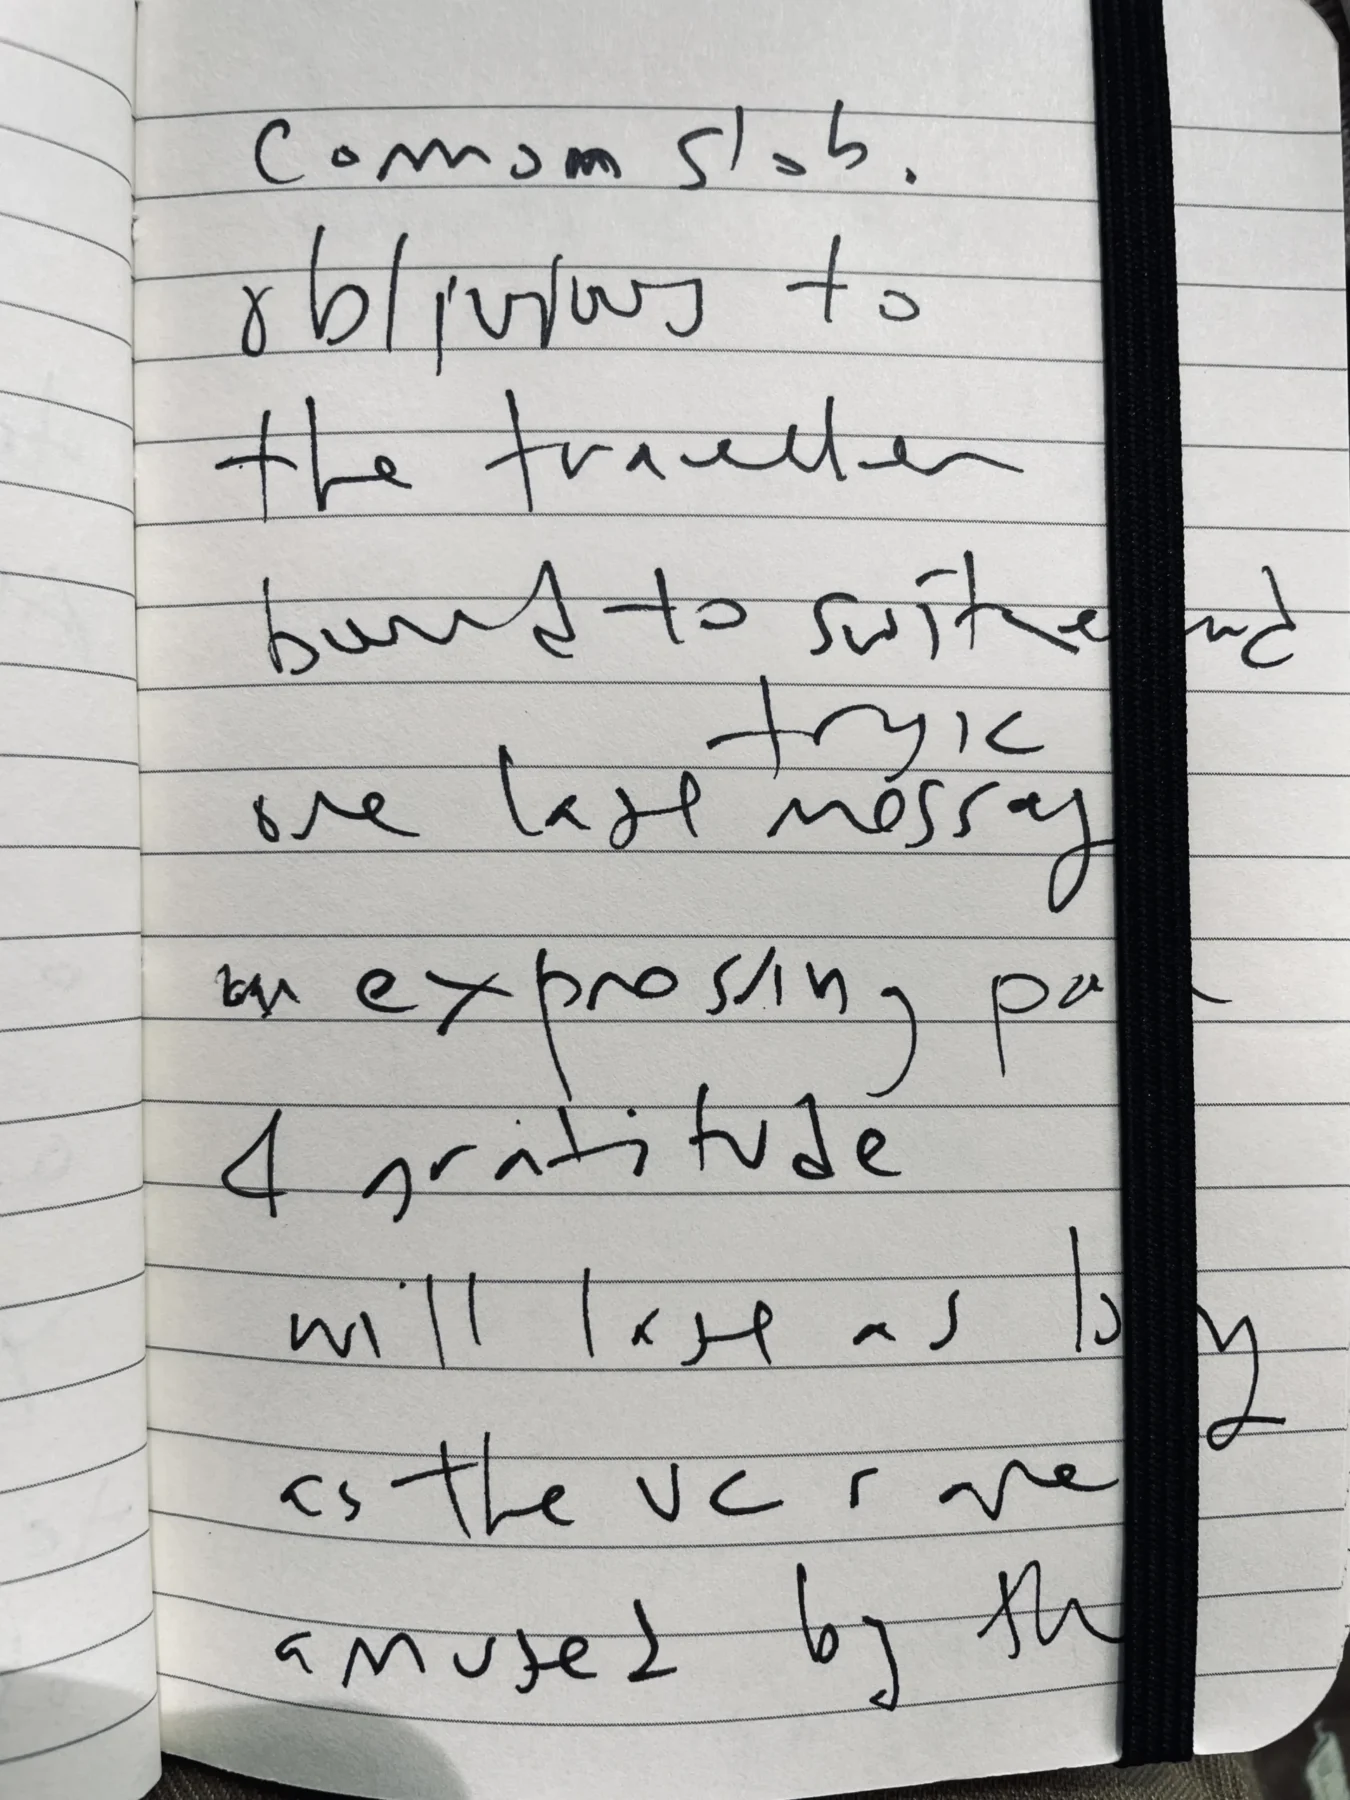 Common slab.
oblivious to
the traveller
bound to
tragic
one last message
expressing
& gratitude
will last as long
as the vc r are
amused by the